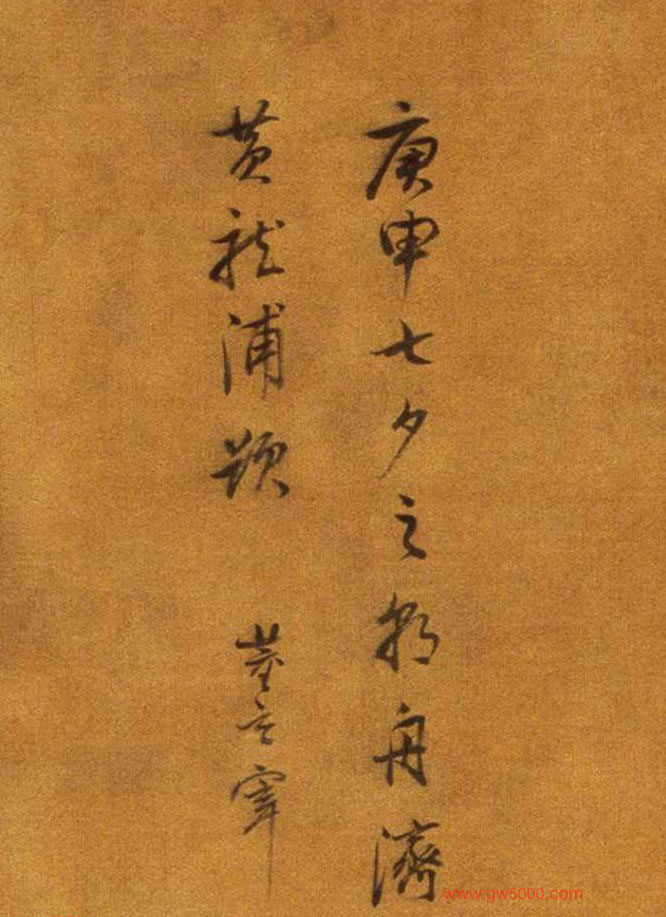 庚申七夕之朝舟濟
黄龍浦題
董玄宰
www.gw5000.com